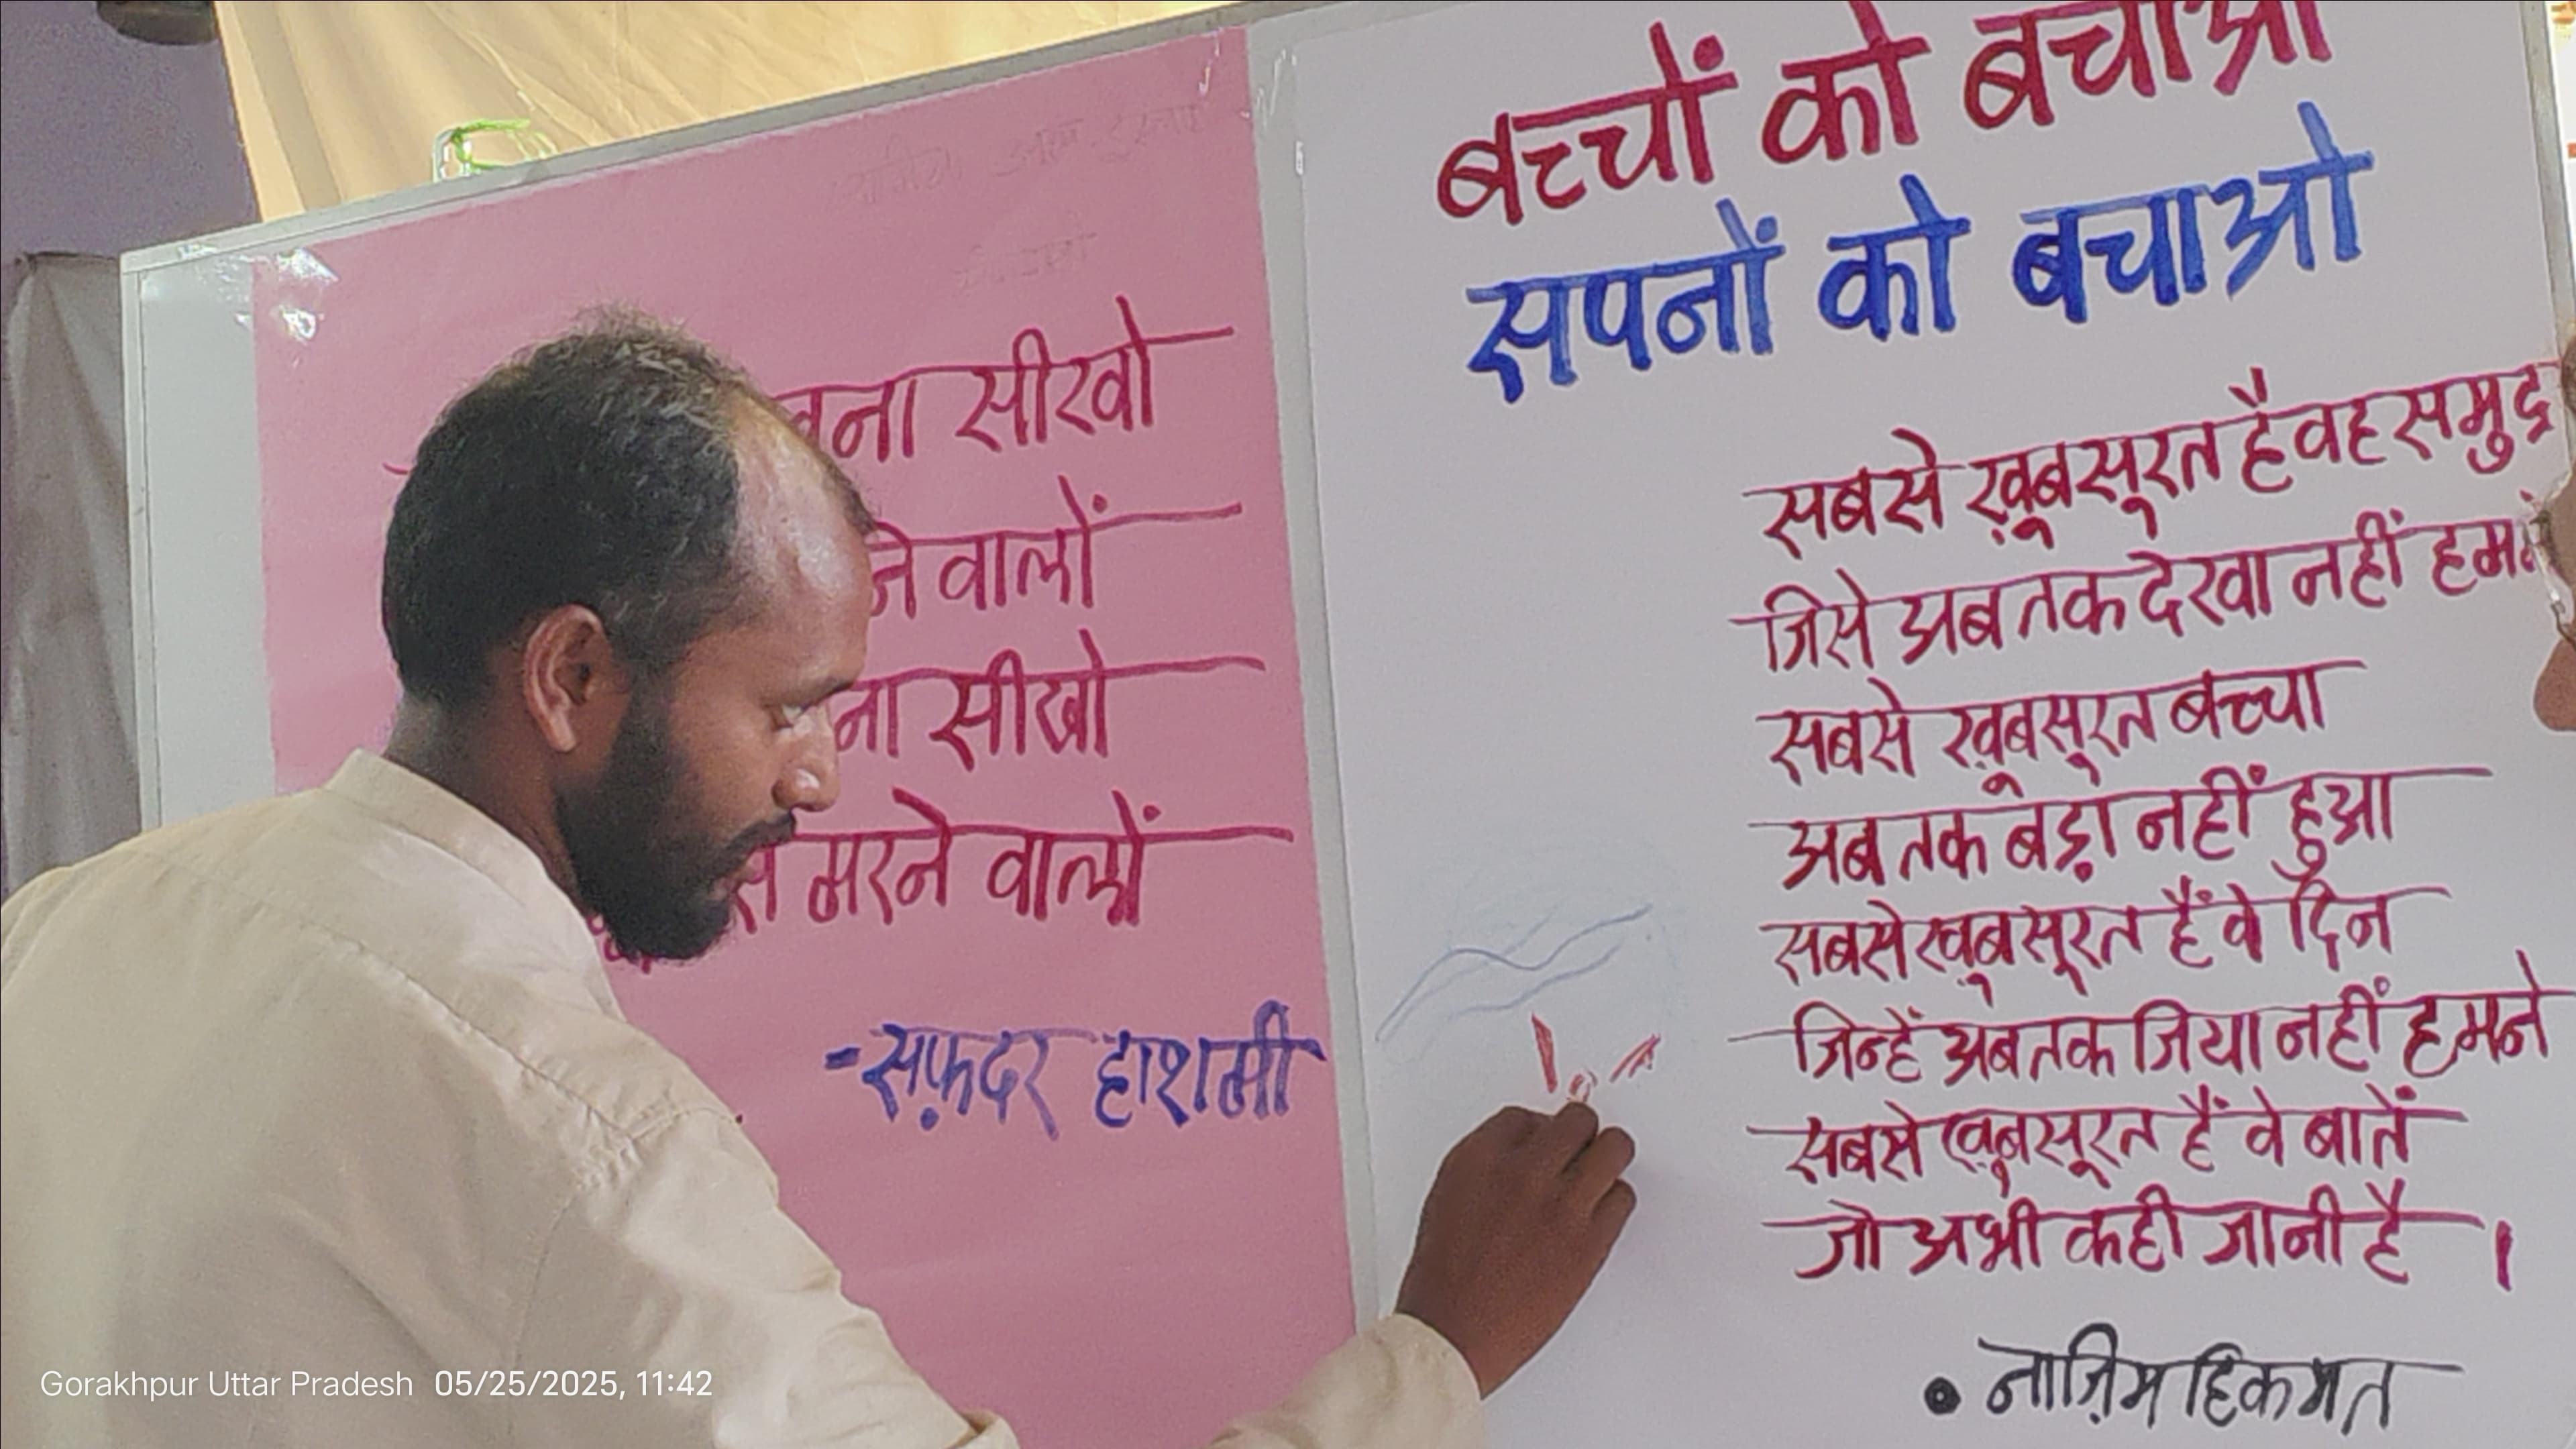 सीखो
वालों
सीखो
मरने वालों
-सफ़दर हाशमी
बच्चों को बचाओ
सपनों को बचाओ
सबसे ख़ूबसूरत है वह समुद्र
जिसे अब तक देखा नहीं
सबसे ख़ूबसूरत बच्चा
अब तक बड़ा नहीं हुआ
सबसे ख़ूबसूरत हैं वे दिन
जिन्हें अब तक जिया नहीं हमने
सबसे ख़ूबसूरत हैं वे बातें
जो अभी कही जानी है ।
• नाज़िम हिकमत
Gorakhpur Uttar Pradesh 05/25/2025, 11:42